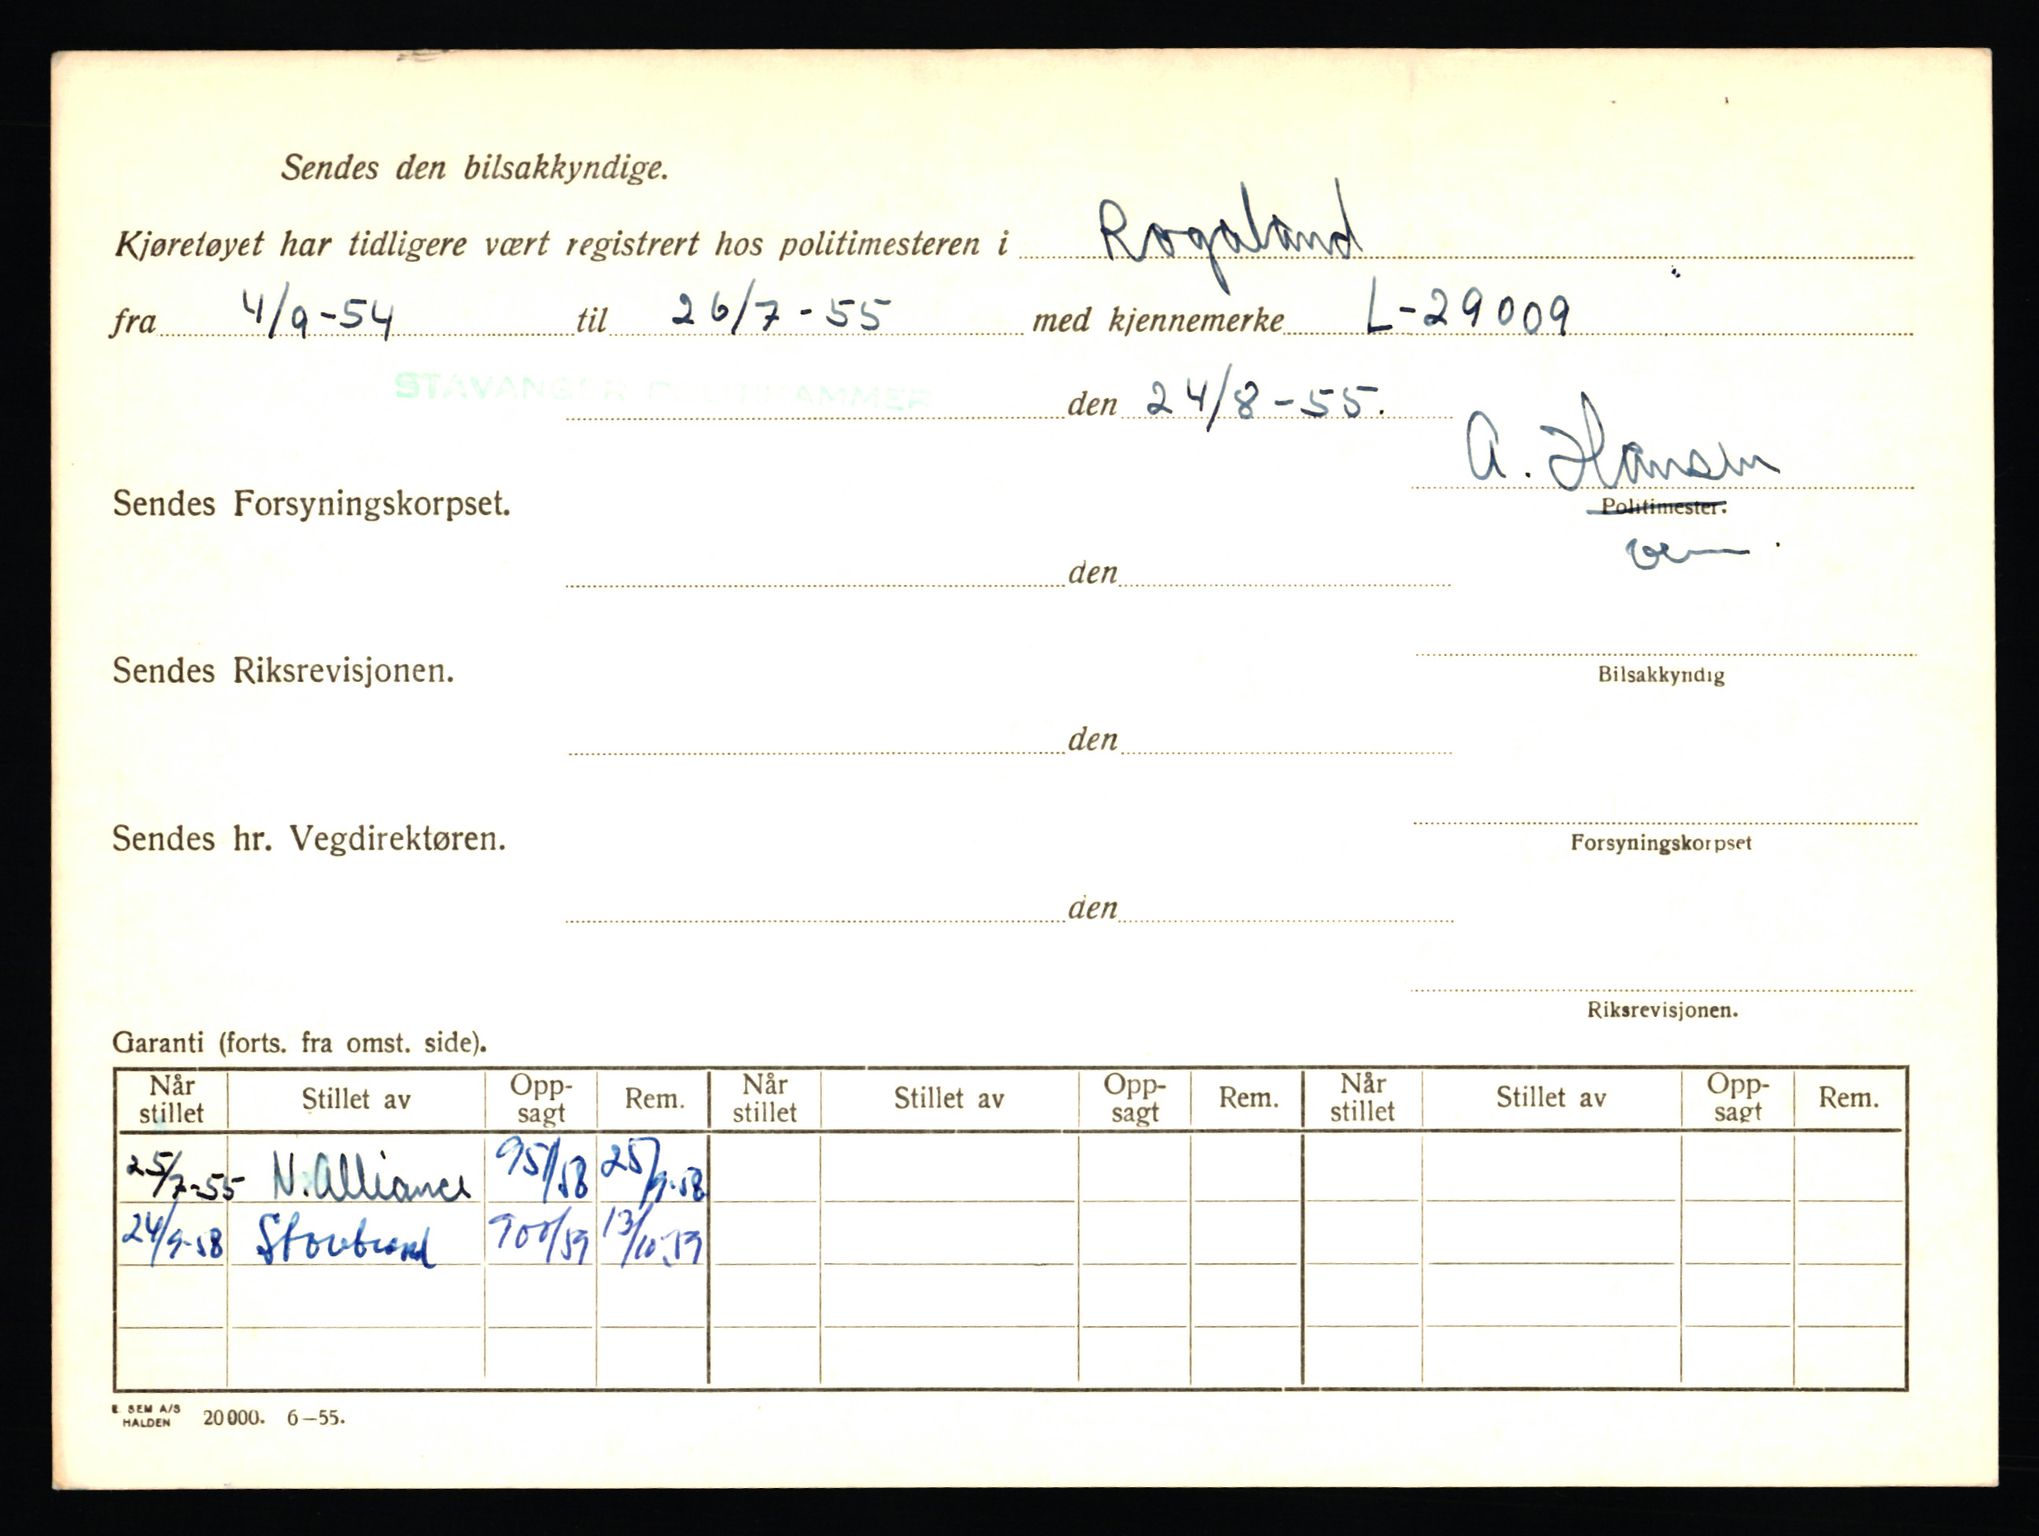 Sendes den bilsakkyndige.
Kjøretøyet har tidligere vært registrert hos politimesteren i Rogaland
fra 4/9-54 til 26/7-55 med kjennemerke L-29009
STAVANGER POLITIKAMMER den 24/8-55.
A. Hansen
Sendes Forsyningskorpset.
Politimester.
den
Sendes Riksrevisjonen.
Bilsakkyndig
den
Sendes hr. Vegdirektøren.
Forsyningskorpset
den
Riksrevisjonen.
Garanti (forts. fra omst. side).
Når stillet Stillet av Opp-sagt Rem. Når stillet Stillet av Opp-sagt Rem. Når stillet Stillet av Opp-sagt Rem.
25/7-55 N. Alliance 951/58 25/9-58
24/9-58 Storebrand 900/59 13/10-59
E. SEM A/S
HALDEN 20000. 6-55.